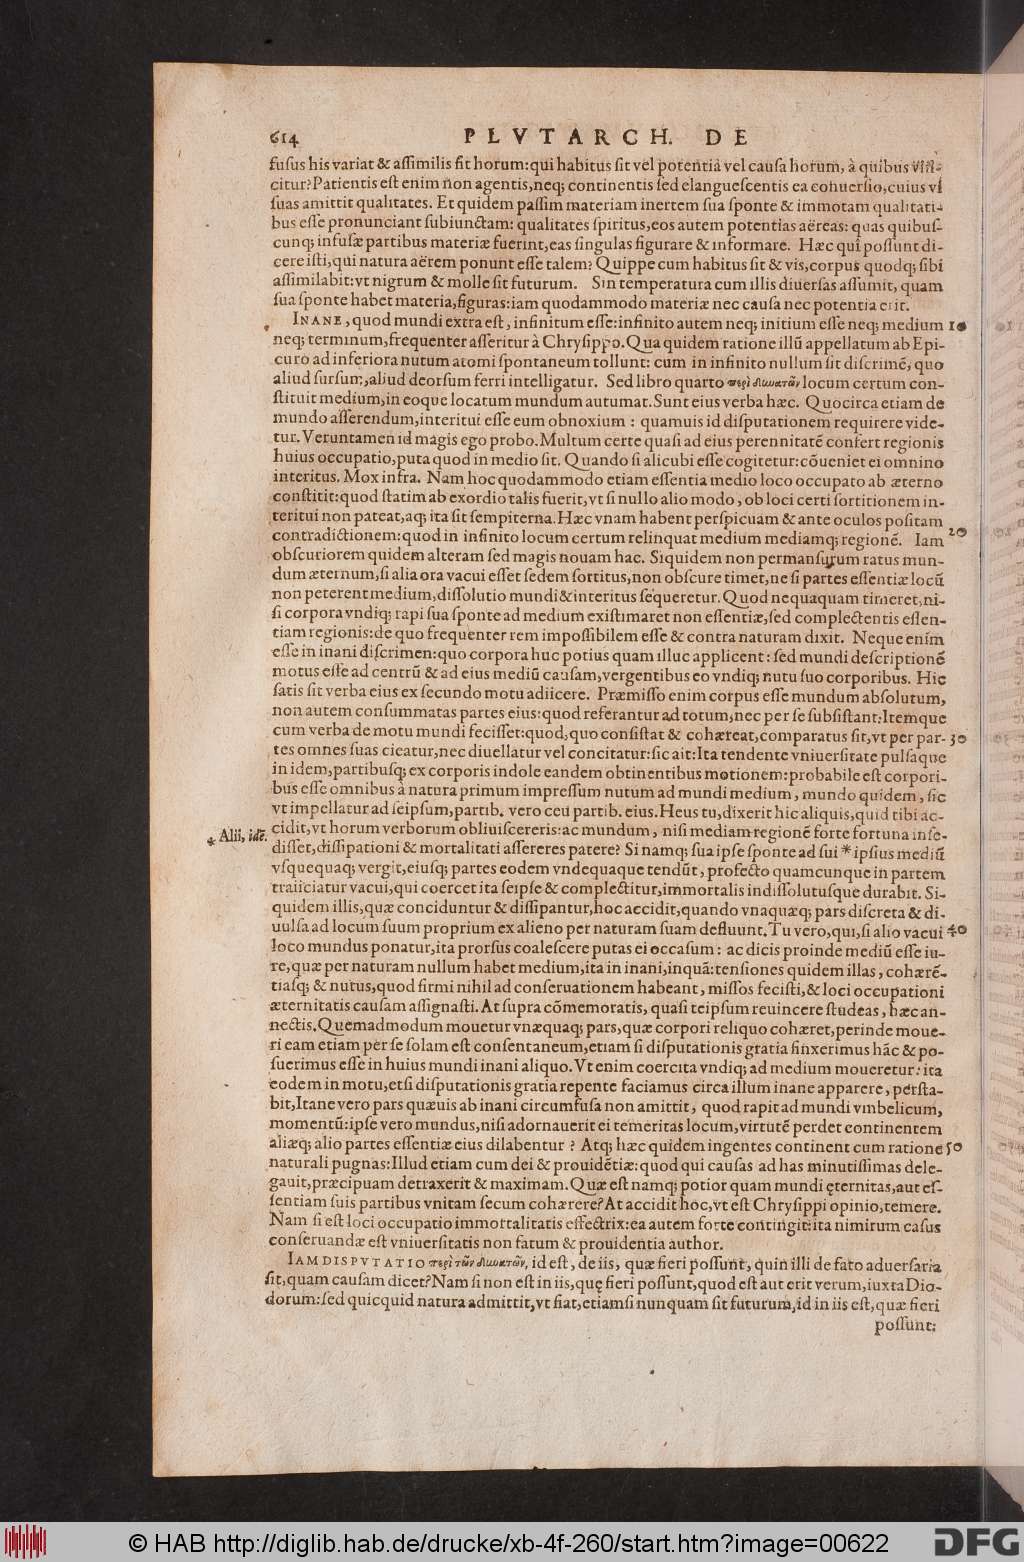 614 PLVTARCH. DE
fusus his variat & assimilis fit horum:qui habitus sit vel potentia vel causa horum, à quibus vin-
citur?Patientis est enim non agentis,neq; continentis sed elanguescentis ea conuersio,cuius vi
suas amittit qualitates. Et quidem passim materiam inertem sua sponte & immotam qualitati-
bus esse pronunciant subiunctam: qualitates spiritus,eos autem potentias aëreas: quas quibus-
cunq; infusæ partibus materiæ fuerint,eas singulas figurare & informare. Hæc qui possunt di-
cere isti,qui natura aërem ponunt esse talem? Quippe cum habitus sit & vis,corpus quodq; sibi
assimilabit:vt nigrum & molle sit futurum. Sin temperatura cum illis diuersas assumit, quam
sua sponte habet materia,figuras:iam quodammodo materiæ nec causa nec potentia erit.
INANE,quod mundi extra est, infinitum esse:infinito autem neq; initium esse neq; medium 10
neq; terminum,frequenter asseritur à Chrysippo.Qua quidem ratione illũ appellatum ab Epi-
curo ad inferiora nutum atomi spontaneum tollunt: cum in infinito nullum sit discrimẽ, quo
aliud sursum,aliud deorsum ferri intelligatur. Sed libro quarto περὶ δυνατῶν locum certum con-
stituit medium,in eoque locatum mundum autumat.Sunt eius verba hæc. Quocirca etiam de
mundo asserendum,interitui esse eum obnoxium : quamuis id disputationem requirere vide-
tur.Veruntamen id magis ego probo.Multum certe quasi ad eius perennitatẽ confert regionis
huius occupatio,puta quod in medio sit. Quando si alicubi esse cogitetur:cõueniet ei omnino
interitus. Mox infra. Nam hoc quodammodo etiam essentia medio loco occupato ab æterno
constitit:quod statim ab exordio talis fuerit,vt si nullo alio modo, ob loci certi sortitionem in-
teritui non pateat,aq; ita sit sempiterna.Hæc vnam habent perspicuam & ante oculos positam
contradictionem:quod in infinito locum certum relinquat medium mediamq; regionẽ. Iam 20
obscuriorem quidem alteram sed magis nouam hac. Siquidem non permansurum ratus mun-
dum æternum,si alia ora vacui esset sedem sortitus,non obscure timet,ne si partes essentiæ locũ
non peterent medium,dissolutio mundi&interitus sequeretur.Quod nequaquam timeret,ni-
si corpora vndiq; rapi sua sponte ad medium existimaret non essentiæ,sed complectentis essen-
tiam regionis:de quo frequenter rem impossibilem esse & contra naturam dixit. Neque enim
esse in inani discrimen:quo corpora huc potius quam illuc applicent: sed mundi descriptionẽ
motus esse ad centrũ & ad eius mediũ causam,vergentibus eo vndiq; nutu suo corporibus. Hic
satis sit verba eius ex secundo motu adiicere. Præmisso enim corpus esse mundum absolutum,
non autem consummatas partes eius:quod referantur ad totum,nec per se subsistant:Itemque
cum verba de motu mundi fecisset:quod,quo consistat & cohæreat,comparatus sit,vt per par- 30
tes omnes suas cieatur,nec diuellatur vel concitatur:sic ait:Ita tendente vniuersitate pulsaque
in idem,partibusq; ex corporis indole eandem obtinentibus motionem:probabile est corpori-
bus esse omnibus à natura primum impressum nutum ad mundi medium, mundo quidem, sic
vt impellatur ad seipsum,partib. vero ceu partib. eius.Heus tu,dixerit hic aliquis,quid tibi ac-
cidit,vt horum verborum obliuiscereris:ac mundum, nisi mediam regionẽ forte fortuna inse-
* Alii, idẽ.
disset,dissipationi & mortalitati assereres patere? Si namq; sua ipse sponte ad sui * ipsius mediũ
vsquequaq; vergit,eiusq; partes eodem vndequaque tendũt, profecto quamcunque in partem
traiiciatur vacui,qui coercet ita seipse & complectitur,immortalis indissolutusque durabit. Si-
quidem illis,quæ conciduntur & dissipantur,hoc accidit,quando vnaquæq; pars discreta & di-
uulsa ad locum suum proprium ex alieno per naturam suam defluunt.Tu vero,qui,si alio vacui 40
loco mundus ponatur,ita prorsus coalescere putas ei occasum : ac dicis proinde mediũ esse iu-
re,quæ per naturam nullum habet medium,ita in inani,inquã:tensiones quidem illas, cohærẽ-
tiasq; & nutus,quod firmi nihil ad conseruationem habeant, missos fecisti,& loci occupationi
æternitatis causam assignasti. At supra cõmemoratis, quasi teipsum reuincere studeas, hæc an-
nectis.Quemadmodum mouetur vnæquaq; pars,quæ corpori reliquo cohæret,perinde moue-
ri eam etiam per se solam est consentaneum,etiam si disputationis gratia finxerimus hãc & po-
suerimus esse in huius mundi inani aliquo.Vt enim coercita vndiq; ad medium moueretur: ita
eodem in motu,etsi disputationis gratia repente faciamus circa illum inane apparere, persta-
bit,Itane vero pars quæuis ab inani circumfusa non amittit, quod rapit ad mundi vmbelicum,
momentũ:ipse vero mundus,nisi adornauerit ei temeritas locum,virtutẽ perdet continentem
aliæq; alio partes essentiæ eius dilabentur ? Atq; hæc quidem ingentes continent cum ratione 50
naturali pugnas:Illud etiam cum dei & prouidẽtiæ:quod qui causas ad has minutissimas dele-
gauit,præcipuam detraxerit & maximam.Quæ est namq; potior quam mundi ęternitas,aut es-
sentiam suis partibus vnitam secum cohærere?At accidit hoc,vt est Chrysippi opinio,temere.
Nam si est loci occupatio immortalitatis effectrix:ea autem forte contingit:ita nimirum casus
conseruandæ est vniuersitatis non fatum & prouidentia author.
IAM DISPVTATIO περὶ τῶν δυνατῶν, id est, de iis, quæ fieri possunt, quin illi de fato aduersaria
sit,quam causam dicet?Nam si non est in iis,quę fieri possunt,quod est aut erit verum,iuxta Dio-
dorum:sed quicquid natura admittit,vt fiat,etiamsi nunquam sit futurum,id in iis est,quæ fieri
possunt:
© HAB http://diglib.hab.de/drucke/xb-4f-260/start.htm?image=00622
DFG